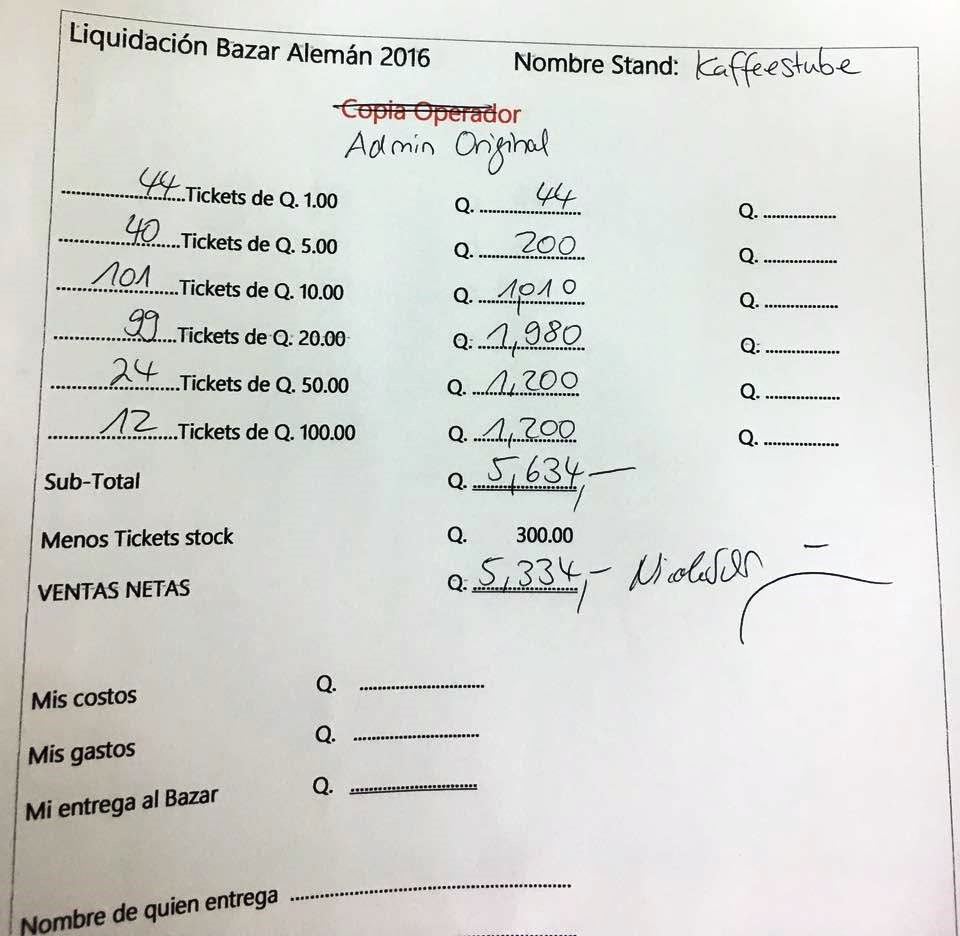 Liquidación Bazar Alemán 2016 Nombre Stand: Kaffeestube
Copia Operador
Admin Original
44 Tickets de Q. 1.00 Q. 44 Q.
40 Tickets de Q. 5.00 Q. 200 Q.
101 Tickets de Q. 10.00 Q. 1,010 Q.
99 Tickets de Q. 20.00 Q. 1,980 Q.
24 Tickets de Q. 50.00 Q. 1,200 Q.
12 Tickets de Q. 100.00 Q. 1,200 Q.
Sub-Total Q. 5,634,—
Menos Tickets stock Q. 300.00
VENTAS NETAS Q. 5,334,—
Mis costos Q.
Mis gastos Q.
Mi entrega al Bazar Q.
Nombre de quien entrega